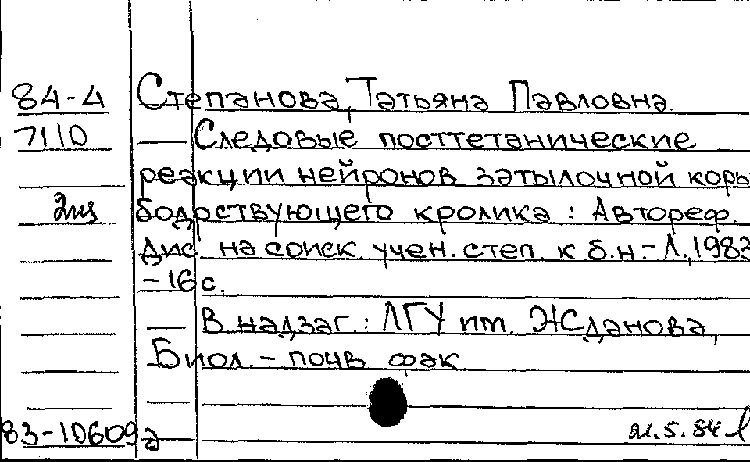 84-4 Степанова, Татьяна Павловна.
7110 — Следовые посттетанические
реакции нейронов затылочной коры
2 бодрствующего кролика : Автореф.
дис. на соиск. учен. степ. к.б.н. - Л., 1983
- 16 с.
— В надзаг.: ЛГУ им. Жданова,
Биол. - почв. фак
83-10609а 21.5.84